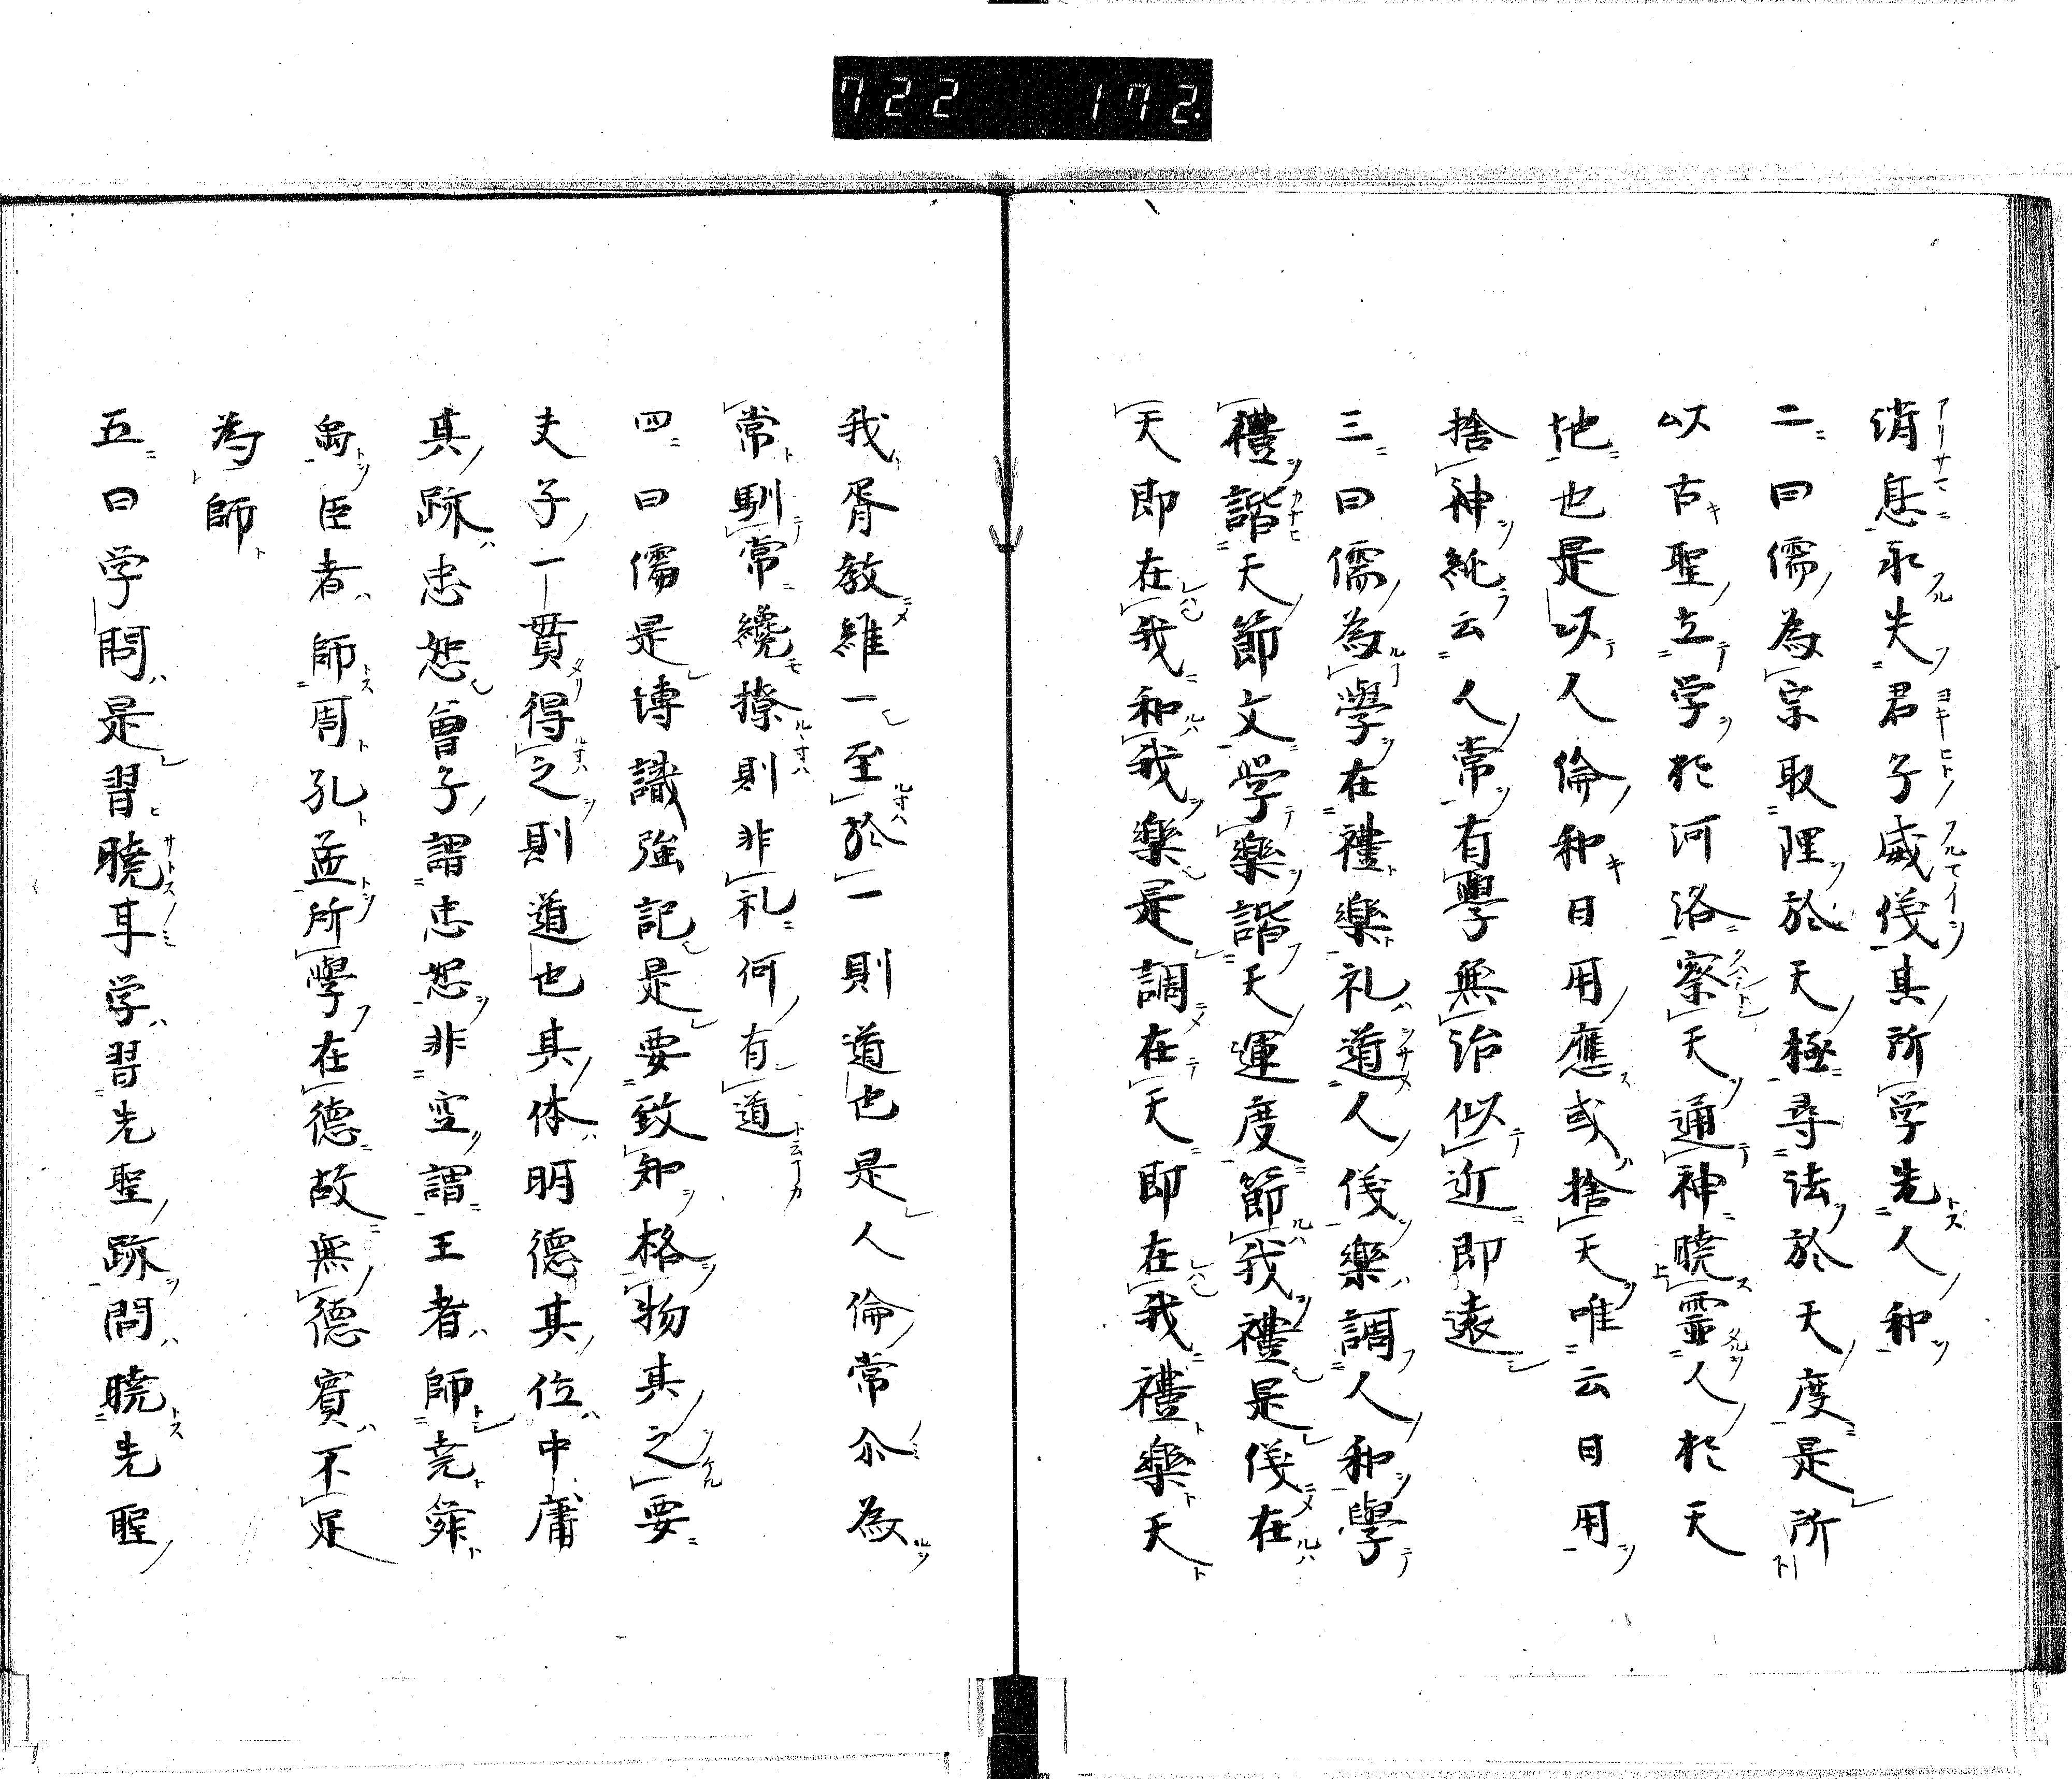 722 172.
消息永失君子威儀其所学先人和
二曰儒為宗取理於天極尋法於天度是所
以古聖立学於河洛察天通神暁霊人於天
地也是以人倫和日用應或捨天唯云日用
捨神純云人常有學無治似近即遠
三曰儒為學在禮楽礼道人儀楽調人和學
禮諧天節文学楽諧天運度節我禮是儀在
天即在我和我楽是調在天即在我禮楽天
我胥教維一至於一則道也是人倫常尒為
常馴常纔撩則非礼何有道
四曰儒是博識強記是要致知格物其之要
夫子一貫得之則道也其体明德其位中庸
其跡忠恕曾子謂忠恕非空謂王者師堯舜
禹臣者師周孔孟所學在德故無德實不足
為師
五曰学問是習暁耳学習先聖跡問暁先聖